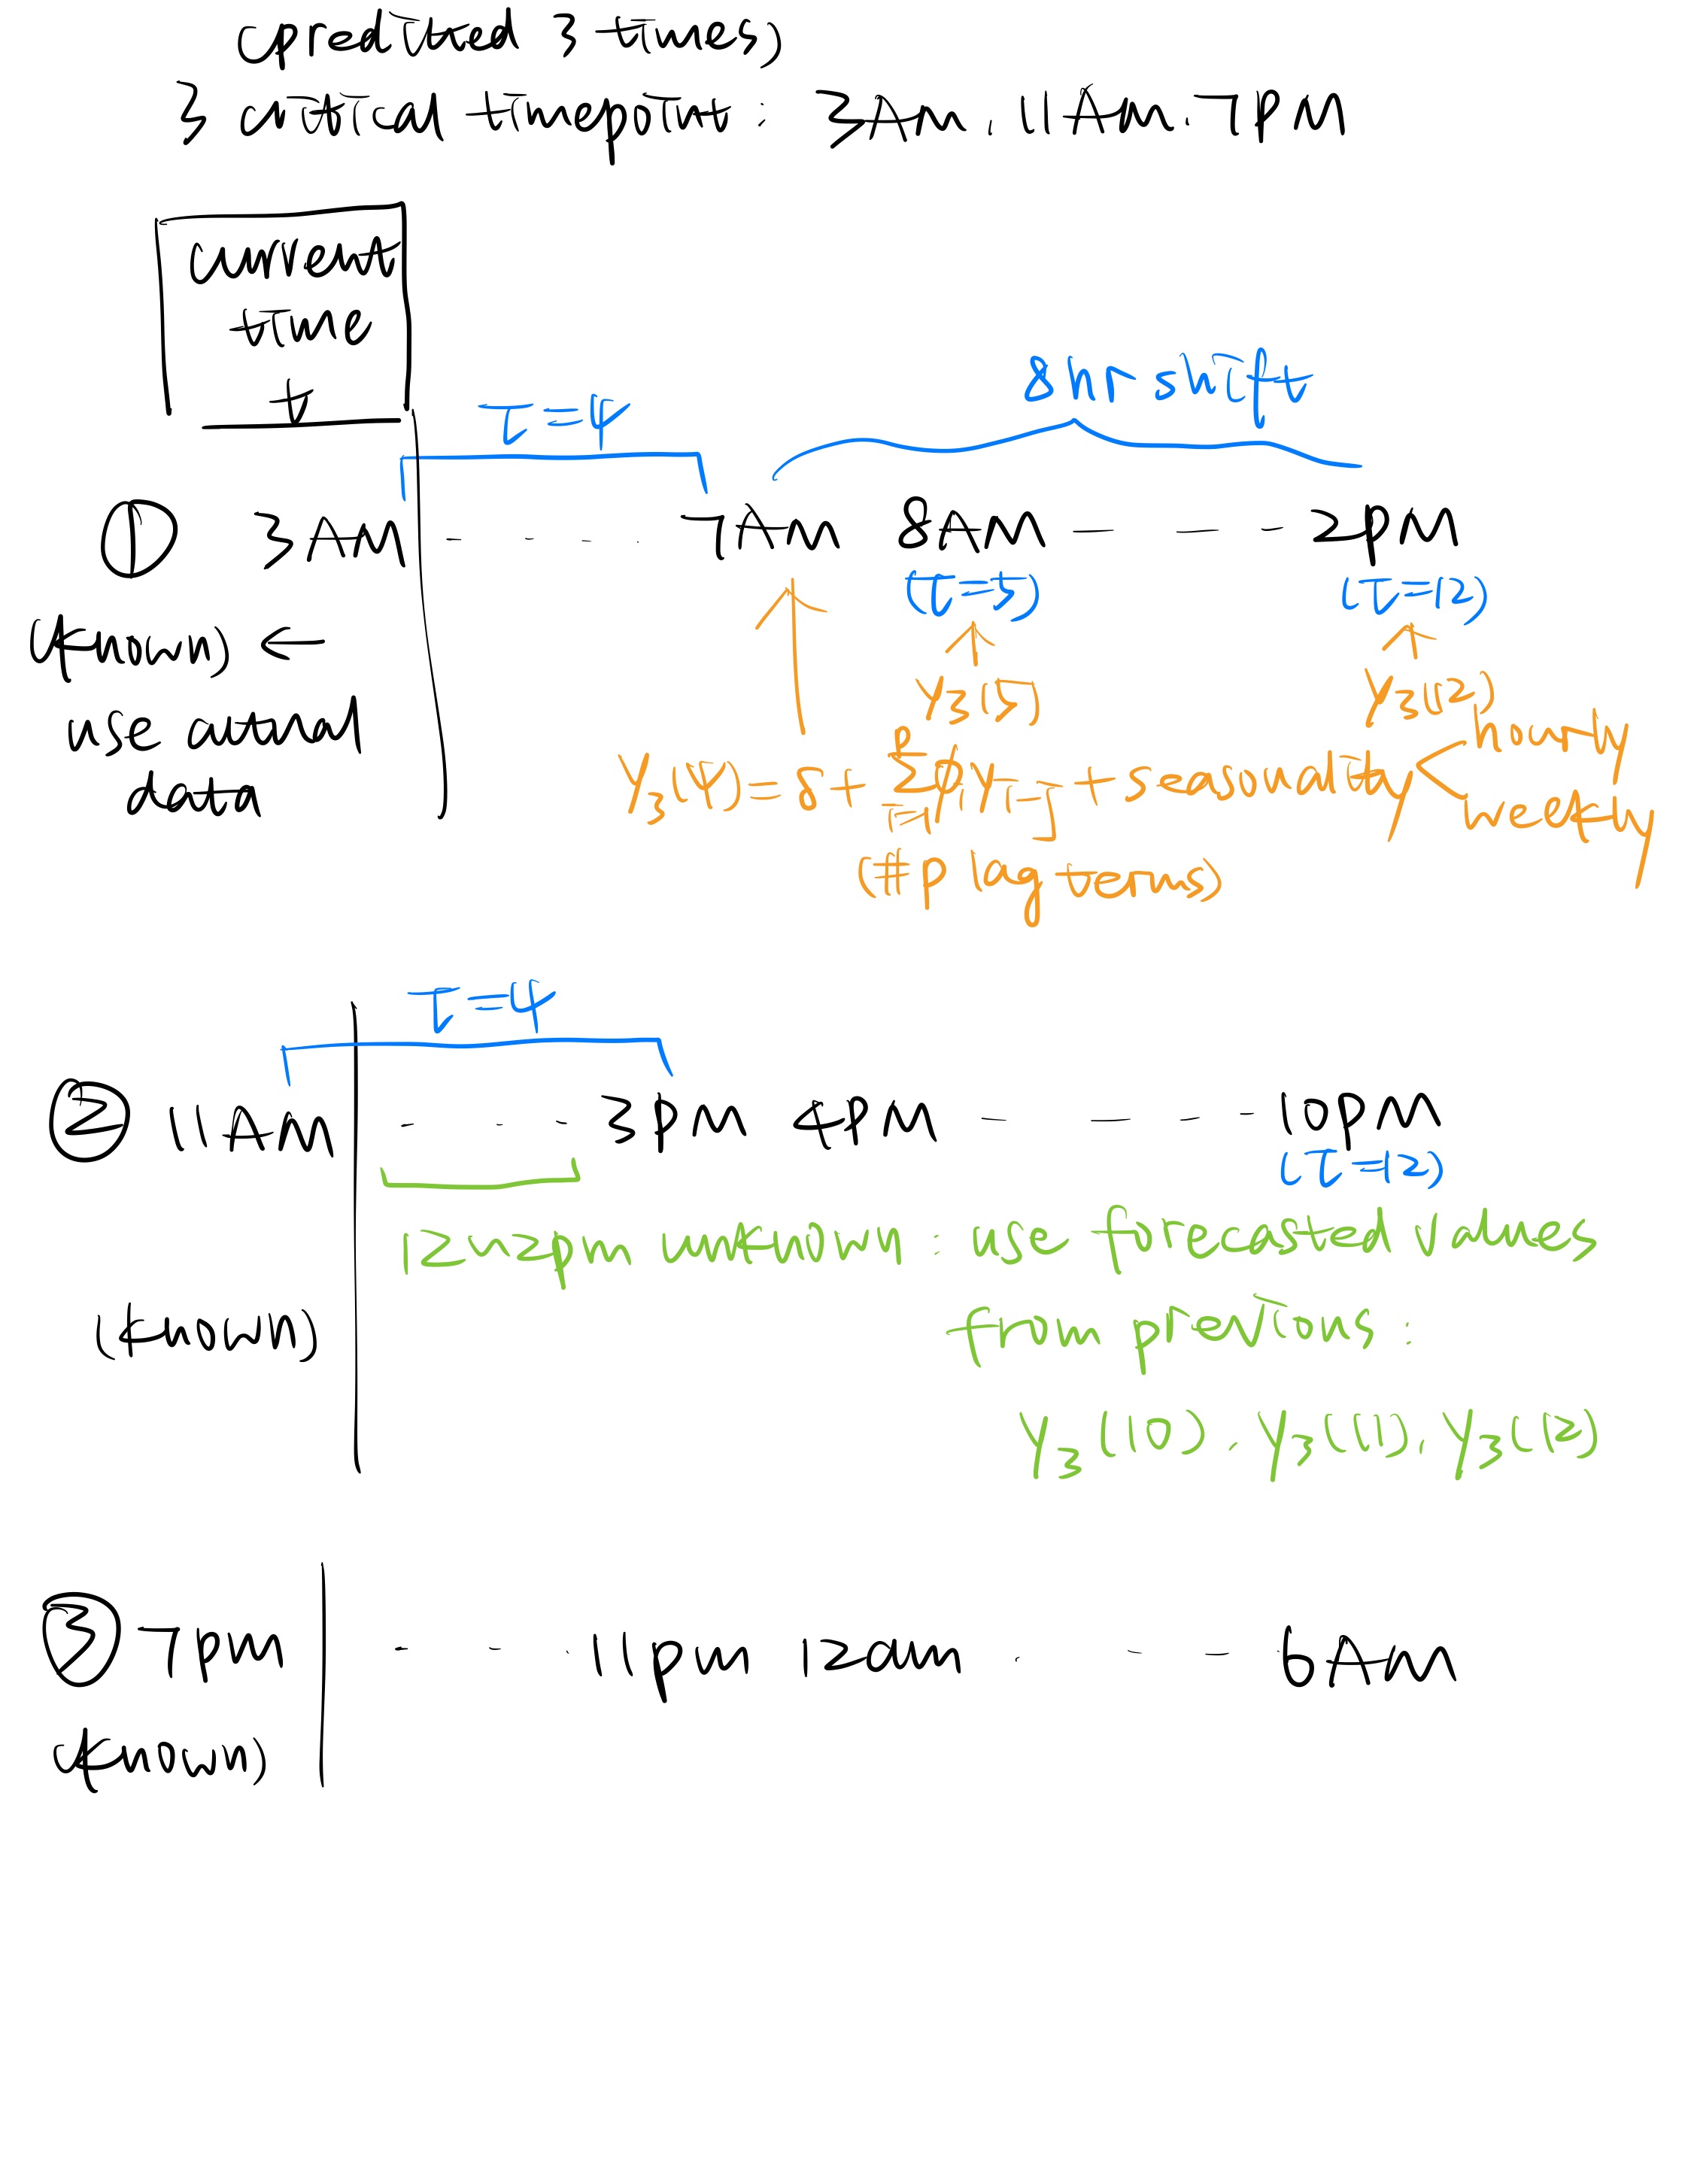 (predicted 3 times)
3 critical timepoint: 3AM, 11AM, 7PM
current
time
t
8hr shift
τ=4
① 3AM - - - - 7AM 8AM - - - 2PM
(τ=5) (τ=12)
(known) ←
use actual
data
Y₃(5) Y₃(12)
Y₃(4) = δ + Σ ϕᵢ Y_{T-j} + seasonality < hourly
weekly
(#p lag terms)
τ=4
② 11AM - - - 3PM 4PM - - - - 10PM
(τ=12)
12n~2pm unknown: use forecasted values
(known) from previous:
Y₃(10), Y₃(11), Y₃(12)
③ 7PM - - - 11pm 12am - - - 6AM
(known)